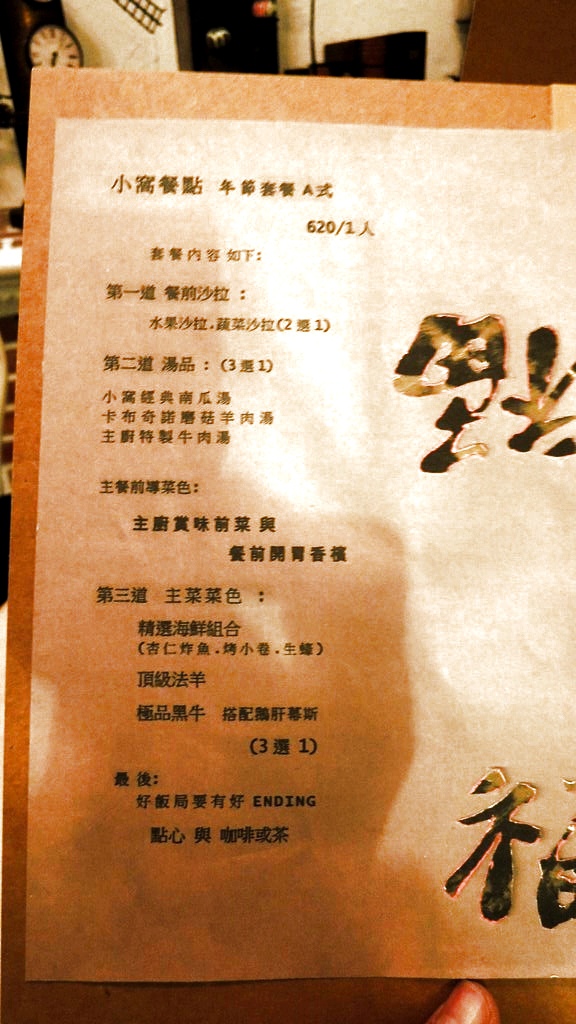 小窩餐點 年節套餐A式
620/1人
套餐內容 如下:
第一道 餐前沙拉 :
水果沙拉.蔬菜沙拉(2選1)
第二道 湯品 : (3選1)
小窩經典南瓜湯
卡布奇諾磨菇羊肉湯
主廚特製牛肉湯
主餐前導菜色:
主廚賞味前菜 與
餐前開胃香檳
第三道 主菜菜色 :
精選海鮮組合
(杏仁炸魚.烤小卷.生蠔)
頂級法羊
極品黑牛 搭配鵝肝幕斯
(3選 1)
最後:
好飯局要有好 ENDING
點心 與 咖啡或茶